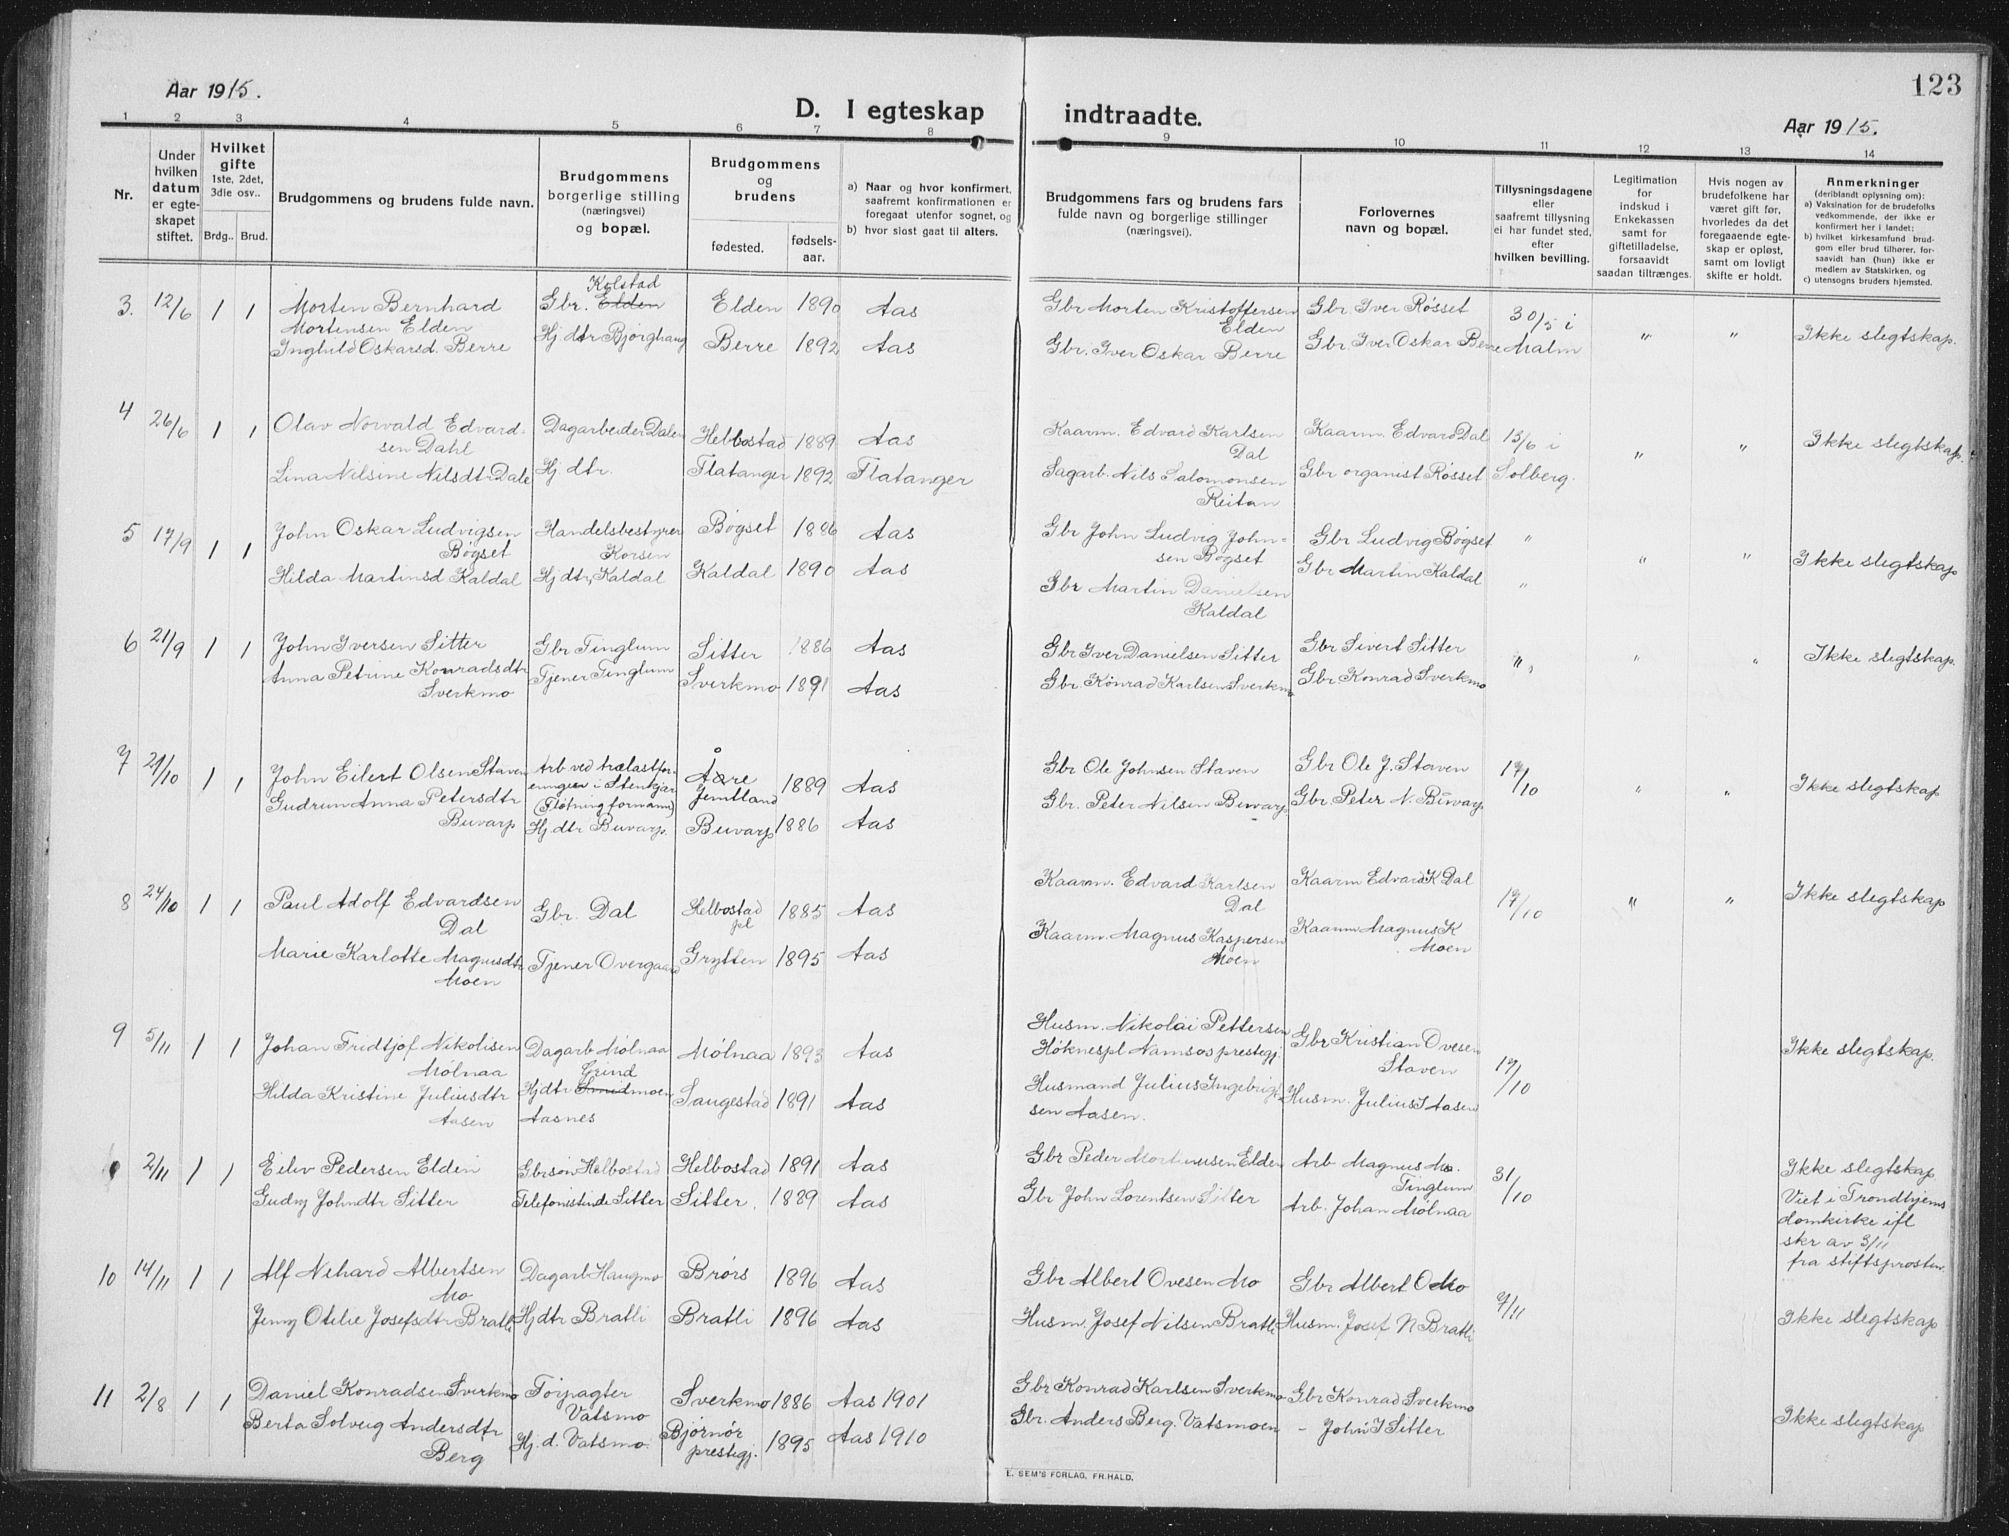 Aar 1915.
D. I egteskap indtraadte.
Aar 1915.
123
1 2 3 4 5 6 7 8 9 10 11 12 13 14
Nr.
Under hvilken datum er egteskapet stiftet.
Hvilket gifte 1ste, 2det, 3die osv..
Brdg.. Brud.
Brudgommens og brudens fulde navn.
Brudgommens borgerlige stilling (næringsvei) og bopæl.
Brudgommens og brudens
fødested. fødsels-aar.
a) Naar og hvor konfirmert, saafremt konfirmationen er foregaat utenfor sognet, og
b) hvor sidst gaat til alters.
Brudgommens fars og brudens fars fulde navn og borgerlige stillinger (næringsvei).
Forlovernes navn og bopæl.
Tillysningsdagene eller saafremt tillysning ei har fundet sted, efter hvilken bevilling.
Legitimation for indskud i Enkekassen samt for giftetilladelse, forsaavidt saadan tiltrænges.
Hvis nogen av brudefolkene har været gift før, hvorledes da det foregaaende egteskap er opløst, samt om lovligt skifte er holdt.
Anmerkninger (deriblandt oplysning om): a) Vaksination for de brudefolks vedkommende, der ikke er konfirmert her i landet; b) hvilket kirkesamfund brudgom eller brud tilhører, forsaavidt han (hun) ikke er medlem av Statskirken, og c) utensogns bruders hjemsted.
3. 12/6 1 1 Morten Bernhard Mortensen Elden Gbr. Elden Kolstad Elden 1890 Aas Gbr Morten Kristoffersen Elden Gbr. Iver Røsset 30/5 i Malm " " Ikke slegtskap.
Inghild Oskarsd. Berre Hj dtr Bjørghaug Berre 1892 Aas Gbr. Iver Oskar Berre Gbr. Iver Oskar Berre
4 26/6 1 1 Olav Norvald Edvardsen Dahl Dagarbeider Dalen Helbostad 1889 Aas Kaarm. Edvard Karlsen Dal Kaarm. Edvard Dal 13/6 i Solberg. " " Ikke slegtskap.
Lina Nilsine Nilsdtr Dale Hj dtr. Flatanger 1892 Flatanger Sagarb. Nils Salomonsen Reitan Gbr organist Røsset
5 17/9 1 1 John Oskar Ludvigsen Bøgset Handelsbestyrer Korsen Bøgset 1886 Aas Gbr John Ludvig Johnsen Bøgset Gbr Ludvig Bøgset " " " Ikke slegtskap
Hilda Martinsd Kaldal Hj dtr, Kaldal Kaldal 1890 Aas Gbr Martin Danielsen Kaldal Gbr Martin Kaldal "
6 21/9 1 1 John Iversen Sitter Gbr Tinglum Sitter 1886 Aas Gbr Iver Danielsen Sitter Gbr Sivert Sitter " " " Ikke slegtskap.
Anna Petrine Konradsdtr Sverkmo Tjener Tinglum Sverkmo 1891 Aas Gbr. Konrad Karlsen Sverkmo Gbr Konrad Sverkmo
7 21/10 1 1 John Eilert Olsen Staven Arb. ved trælastforeningen i Stenkjær (Fløtningformann) Åre Jemtland 1889 Aas Gbr Ole Johnsen Staven Gbr Ole J. Staven 17/10 " " Ikke slegtskap
Gudrun Anna Petersdtr Buvarp Hj dtr Buvarp. Buvarp 1886 Aas Gbr. Peter Nilsen Buvarp Gbr Peter N. Buvarp
8 24/10 1 1 Paul Adolf Edvardsen Dal Gbr. Dal Helbostad pl 1885 Aas Kaarm. Edvard Karlsen Dal Kaarm Edvard K Dal 17/10 " " Ikke slegtskap
Marie Karlotte Magnusdtr Moen Tjener Overgaard Grytten 1895 Aas Kaarm. Magnus Kaspersen Moen Kaarm Magnus K Moen
9 5/11 1 1 Johan Fridtjof Nikolisen Mølnaa Dagarb Mølnaa Mølnaa 1893 Aas Husm. Nikolai Pettersen Høknespl Namsos prestegj. Gbr Kristian Ovesen Staven 17/10 Ikke slegtskap.
Hilda Kristine Juliusdtr Aasen Hjdtr Smidmoen Grind Aasnes Saugestad 1891 Aas Husmand Julius Ingebrigtsen Aasen. Husm. Julius I Aasen
2/11 1 1 Eiliv Pedersen Elden Gbrsøn Helbostad Helbostad 1891 Aas Gbr Peder Mortinusen Elden Arb Magnus M. Tinglum 31/10 Ikke slegtskap
Gudny Johndtr Sitter Telefonistinde Sitter Sitter. 1889 Aas Gbr John Lorentsen Sitter Arb. Johan Mølnaa Viet i Trondhjems domkirke ifl skr av 3/11 fra stiftsprosten.
10 14/11 1 1 Alf Nihard Albertsen Mo Dagarb Haugmo Brørs 1896 Aas Gbr Albert Ovesen Mo Gbr Albert O Mo 7/11 Ikke slegtskap
Jenny Otelie Josefsdtr Bratli Hjdtr Bratli Bratli 1896 Aas Husm. Josef Nilsen Bratli Husm. Josef N Bratli
11 2/8 1 1 Daniel Konradsen Sverkmo Forpagter Vatsmo Sverkmo 1886 Aas 1901 Gbr Konrad Karlsen Sverkmo Gbr Konrad Sverkmo Ikke slegtskap
Berta Solveig Andersdtr Berg Hj. d. Vatsmo. Bjørnør prestegj. 1895 Aas 1910 Gbr. Anders Berg. Vatsmoen - John I Sitter
E. SEM'S FORLAG, FR.HALD.